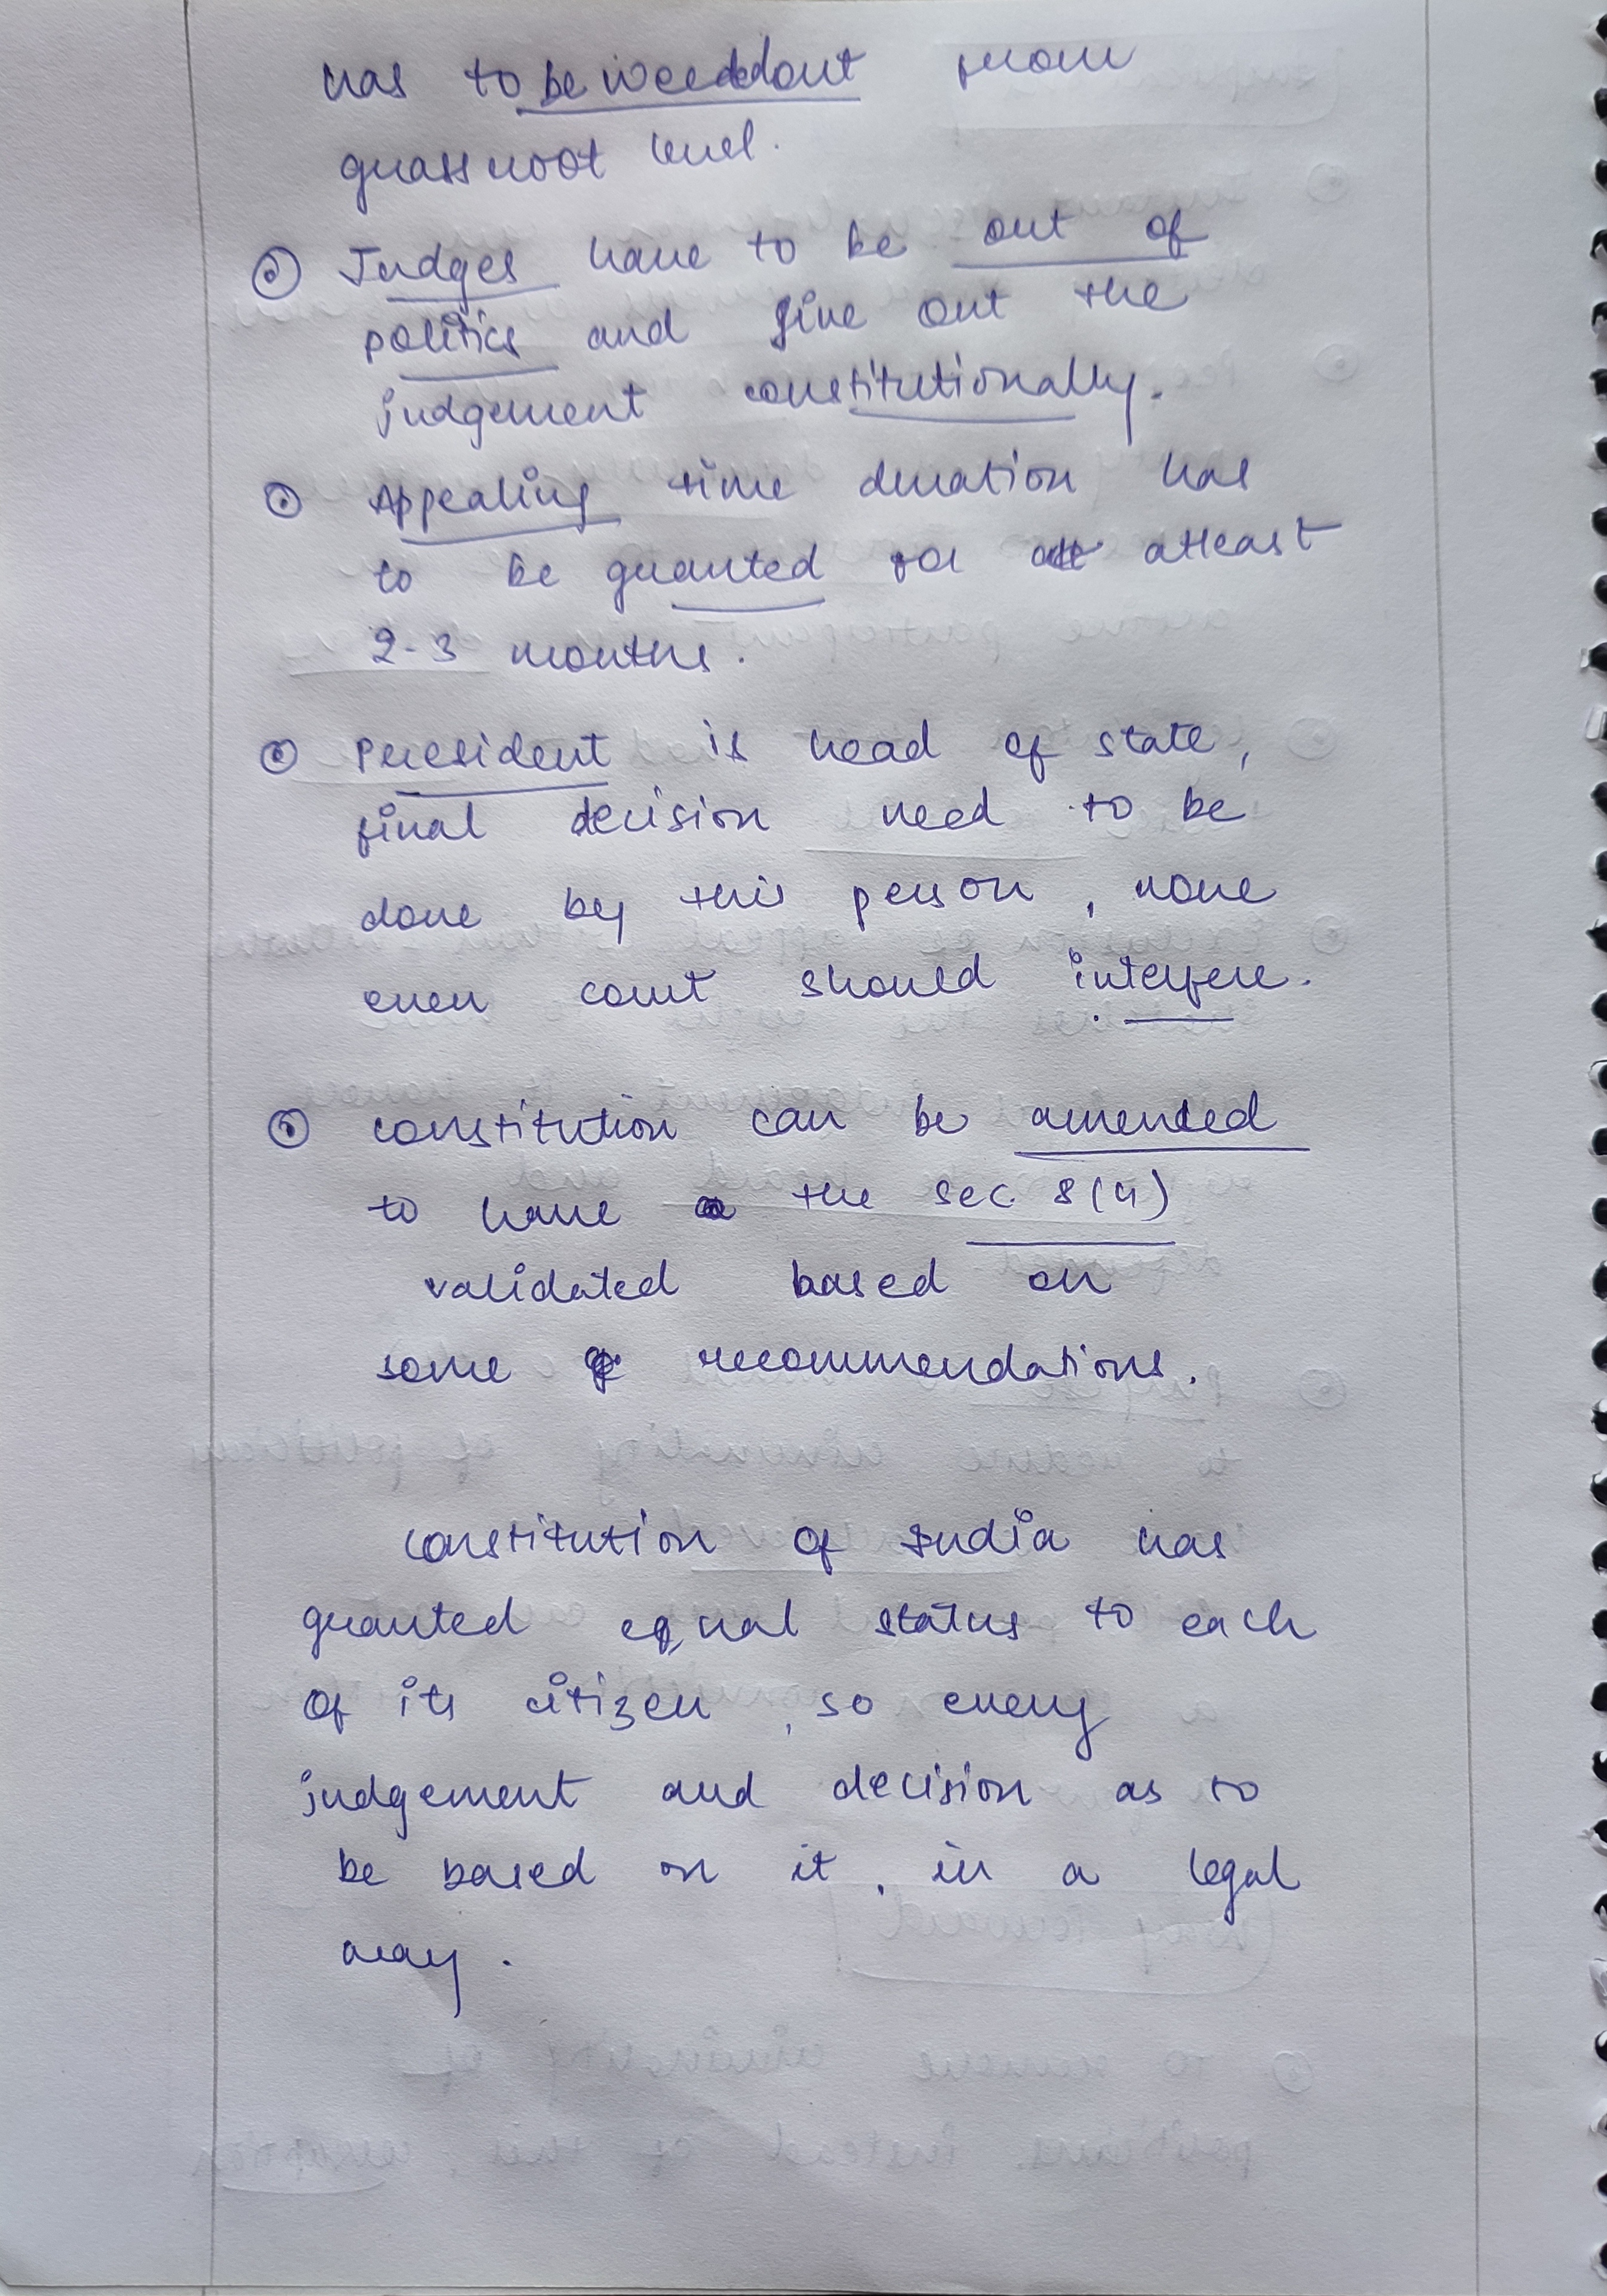 has to be weededout from
grassroot level.
Judges have to be out of
politics and give out the
judgement constitutionally.
Appealing time duration has
to be granted for atleast
2-3 months.
President is head of state,
final decision need to be
done by this person, none
even court should interfere.
constitution can be amended
to have the sec 8(4)
validated based on
some recommendations.
constitution of India has
granted equal status to each
of its citizen, so every
judgement and decision as to
be based on it, in a legal
way.